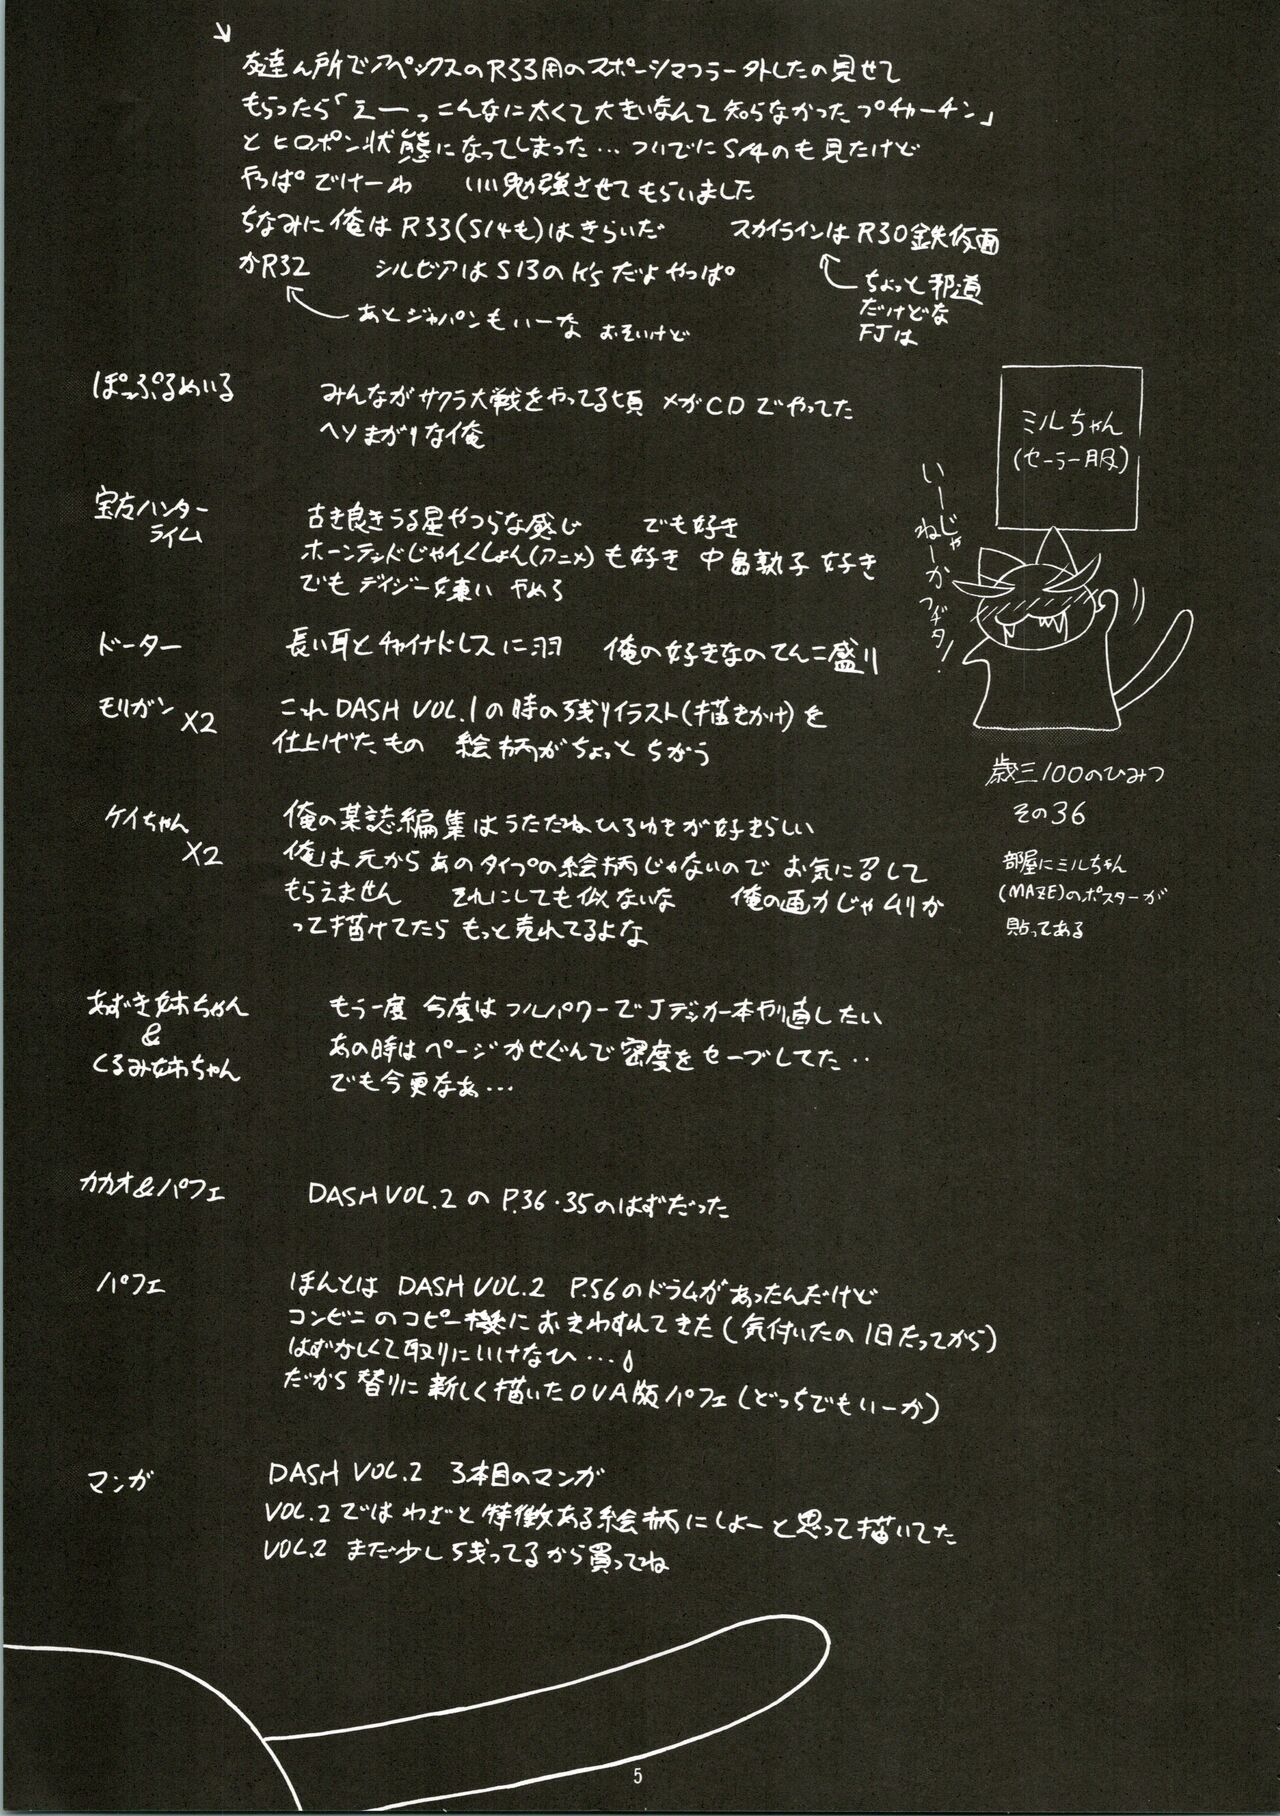 友達ん所でアペックスのR33用のスポーツマフラー外したの見せて
もらったら「えーっこんなに太くて大きいなんて知らなかったプチャーチン」
とヒロポン状態になってしまった…ついでにS14のも見たけど
やっぱでけーわ いい勉強させてもらいました
ちなみに俺はR33(S14も)はきらいだ スカイラインはR30鉄仮面
かR32 シルビアはS13のK'sだよやっぱ
ちょっと邪道
だけどな
FJは
あとジャパンもいーな おそいけど
ぽっぷるめいる
みんながサクラ大戦をやってる頃 メガCDでやってた
ヘソまがりな俺
ミルちゃん
(セーラー服)
いーじゃ
ねーか
宝石ハンター
ライム
古き良きうる星やつらな感じ でも好き
ホーンテッドじゃんくしょん(アニメ)も好き 中島敦子 好き
でも デイジー嫌い やめろ
ドーター
長い耳とチャイナドレスに羽 俺の好きなのてんこ盛り
モリガン X2
これDASH VOL.1の時の残りイラスト(描きかけ)を
仕上げたもの 絵柄がちょっとちがう
歳三100のひみつ
その36
部屋にミルちゃん
(MAZE)のポスターが
貼ってある
ケイちゃん
X2
俺の某誌編集はうたたねひろゆきが好きらしい
俺は元からあのタイプの絵柄じゃないので お気に召して
もらえません それにしても似ないな 俺の画力じゃムリか
って描けてたら もっと売れてるよな
あずき姉ちゃん
&
くるみ姉ちゃん
もう一度 今度はフルパワーでJデッカー本やり直したい
あの時はページかせぐんで密度をセーブしてた‥
でも今更なぁ…
カカオ&パフェ
DASH VOL.2 の P.36・35のはずだった
パフェ
ほんとは DASH VOL.2 P.56のドラムがあったんだけど
コンビニのコピー機におきわすれてきた(気付いたの1日たってから)
はずかしくて取りにいけなひ…
だから替りに新しく描いたOVA版パフェ(どっちでもいーか)
マンガ
DASH VOL.2 3本目のマンガ
VOL.2ではわざと特徴ある絵柄にしよーと思って描いてた
VOL.2 まだ少し残ってるから買ってね
5